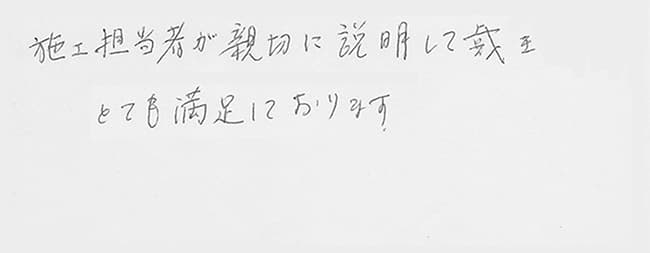 施工担当者が親切に説明して戴き
とても満足しております